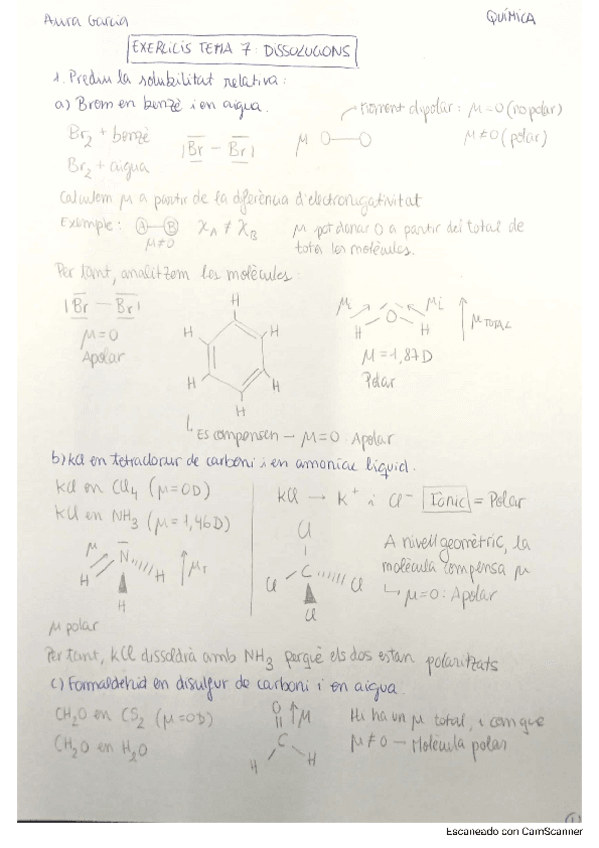 Aura Garcia
QUÍMICA
EXERCICIS TEMA 7: DISSOLUCIONS
1. Prediu la solubilitat relativa:
a) Brom en benzè i en aigua.
Moment dipolar: μ=0 (no polar)
μ≠0 (polar)
Br2 + benzè
Br2 + aigua
|Br - Br|
μ O—O
Calculem μ a partir de la diferència d'electronegativitat
Exemple: A—B χA ≠ χB
μ≠0
μ pot donar 0 a partir del total de
totes les molècules.
Per tant, analitzem les molècules:
|Br — Br|
μ=0
Apolar
H
H H
H H
H
μi μi
O
H H
μTOTAL
μ=1,87D
Polar
Es compensen - μ=0: Apolar
b) KCl en tetraclorur de carboni i en amoníac líquid.
KCl en CCl4 (μ=0D)
KCl en NH3 (μ=1,46D)
μ N H H H μT
μ polar
KCl → K+ i Cl- Iònic = Polar
Cl
Cl C Cl
Cl
A nivell geomètric, la
molècula compensa μ
μ=0: Apolar
Per tant, KCl dissoldrà amb NH3 perquè els dos estan polaritzats
c) Formaldehid en disulfur de carboni i en aigua.
CH2O en CS2 (μ=0D)
CH2O en H2O
O μ
C
H H
Hi ha un μ total, i com que
μ≠0 - Molècula polar
1
Escaneado con CamScanner